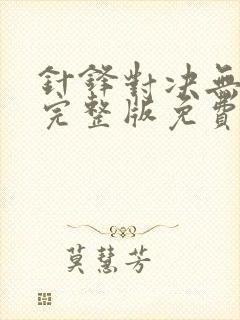 針鋒對决無
完整版免費
莫慧芳